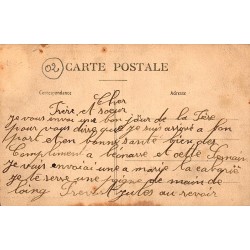 02
CARTE POSTALE
Correspondance
Adresse
Cher
Frère et soeur
je vous envoi une bonjour de la Fère
pour vous dire que je suis arrivé a bon
port et en bonne santé bien des
Compliment a et cette Semain
je vous envoiai une a marie la
je te serre une poigne de main de
loing Jules au revoir